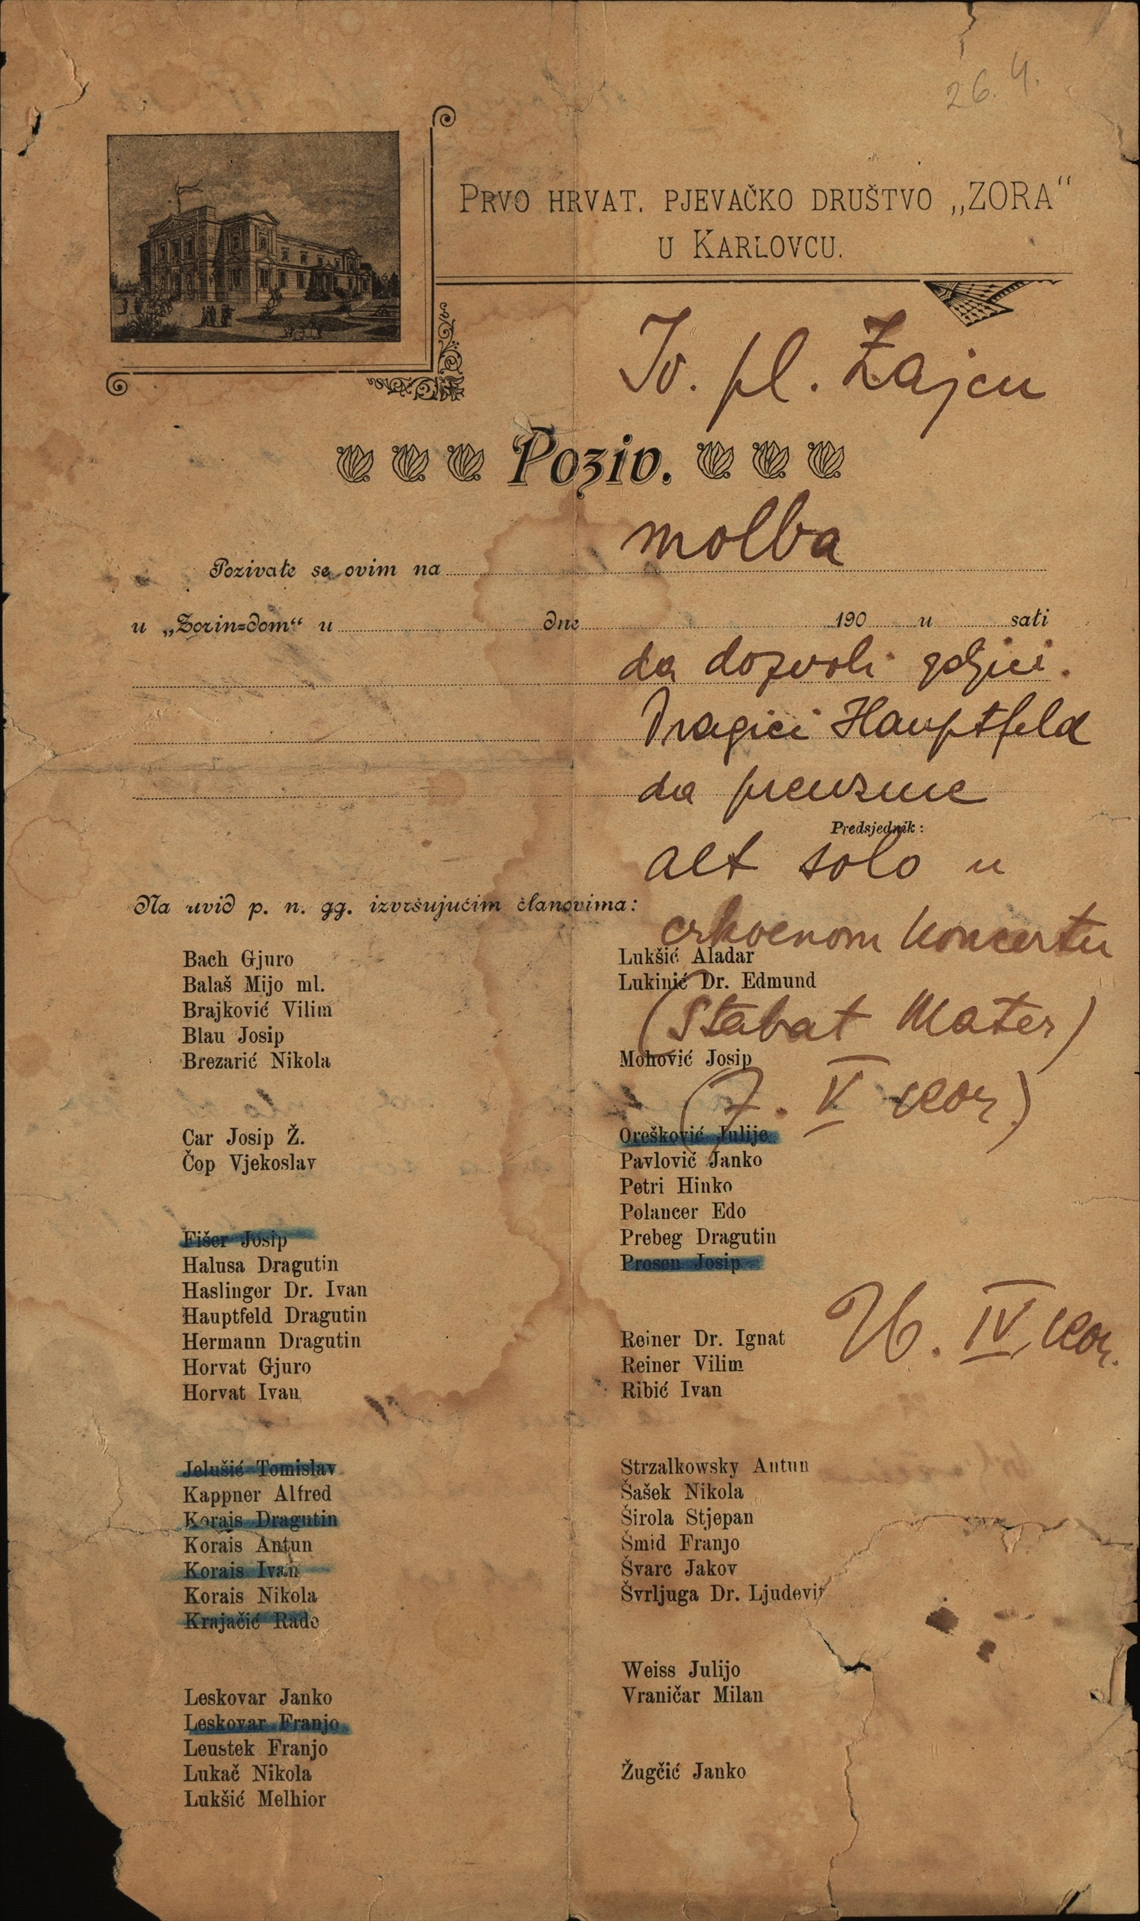 26. 4.
PRVO HRVAT. PJEVAČKO DRUŠTVO „ZORA“
U KARLOVCU.
Iv. pl. Zajcu
Poziv.
molba
Pozivate se ovim na
u „Zorin=dom“ u dne 190 u sati
da dozvoli gdjici.
Dragici Hauptfeld
da preuzme
Predsjednik:
alt solo u
Na uvid p. n. gg. izvršujućim članovima:
crkvenom koncertu
Bach Gjuro
Balaš Mijo ml.
Brajković Vilim
Blau Josip
Brezarić Nikola
Car Josip Ž.
Čop Vjekoslav
Fišer Josip
Halusa Dragutin
Haslinger Dr. Ivan
Hauptfeld Dragutin
Hermann Dragutin
Horvat Gjuro
Horvat Ivan
Jelušić Tomislav
Kappner Alfred
Korais Dragutin
Korais Antun
Korais Ivan
Korais Nikola
Krajačić Rade
Leskovar Janko
Leskovar Franjo
Leustek Franjo
Lukač Nikola
Lukšić Melhior
Lukšić Aladar
Lukinić Dr. Edmund
(Stabat Mater)
Mohović Josip
(7. V
Orešković Julije
Pavlović Janko
Petri Hinko
Polancer Edo
Prebeg Dragutin
Prosen Josip
IV
Reiner Dr. Ignat
Reiner Vilim
Ribić Ivan
Strzalkowsky Antun
Šašek Nikola
Širola Stjepan
Šmid Franjo
Švarc Jakov
Švrljuga Dr. Ljudevit
Weiss Julijo
Vraničar Milan
Žugčić Janko